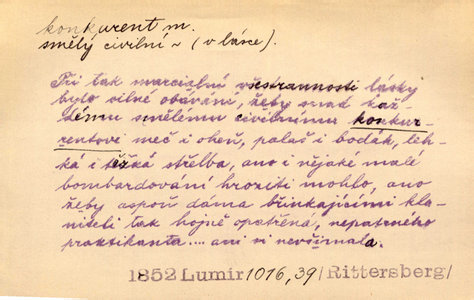 konkurent m.
smělý civilní ~ (v lásce).
Při tak marcialní všestrannosti lásky
bylo silné obávaní, žeby snad kaž-
dému smělému civilnímu konkur-
rentovi meč i oheň, palaš i bodák, leh-
ká i těžká střelba, ano i nějaké malé
bombardování hroziti mohlo, ano
žeby aspoň dáma břinkajícími kla-
niteli tak hojně opatřená, nepatrného
praktikanta.... ani si nevšímala.
1852 Lumír 1016,39/Rittersberg/